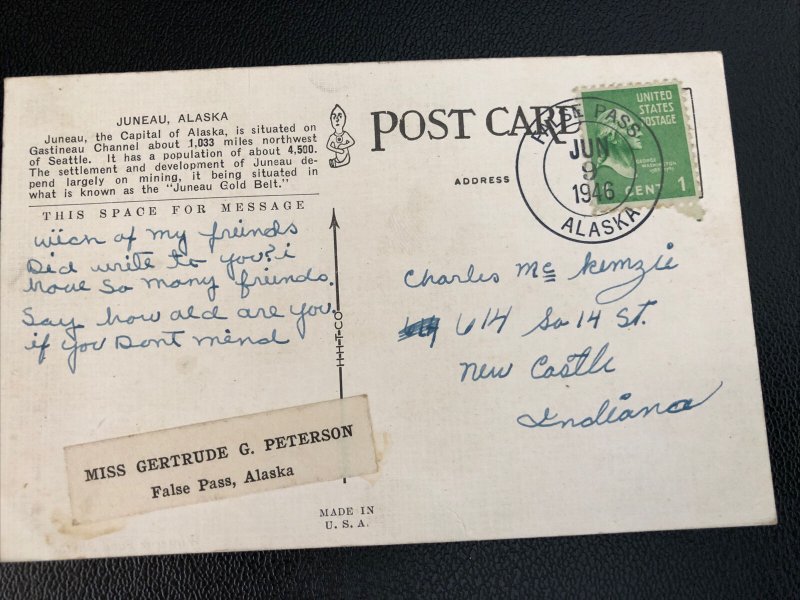 JUNEAU, ALASKA
Juneau, the Capital of Alaska, is situated on
Gastineau Channel about 1,033 miles northwest
of Seattle. It has a population of about 4,500.
The settlement and development of Juneau de-
pend largely on mining, it being situated in
what is known as the "Juneau Gold Belt."
THIS SPACE FOR MESSAGE
wiich of my freinds
Did write to you? i
have so many friends.
Say how old are you.
if you Dont mind
MISS GERTRUDE G. PETERSON
False Pass, Alaska
I-H-T-CO
MADE IN
U. S. A.
POST CARD
ADDRESS
FALSE PASS
JUN
9
1946
ALASKA
UNITED
STATES
POSTAGE
GEORGE
WASHINGTON
CENT 1
Charles Mc Kemzie
614 So 14 St.
New Castle
Indiana